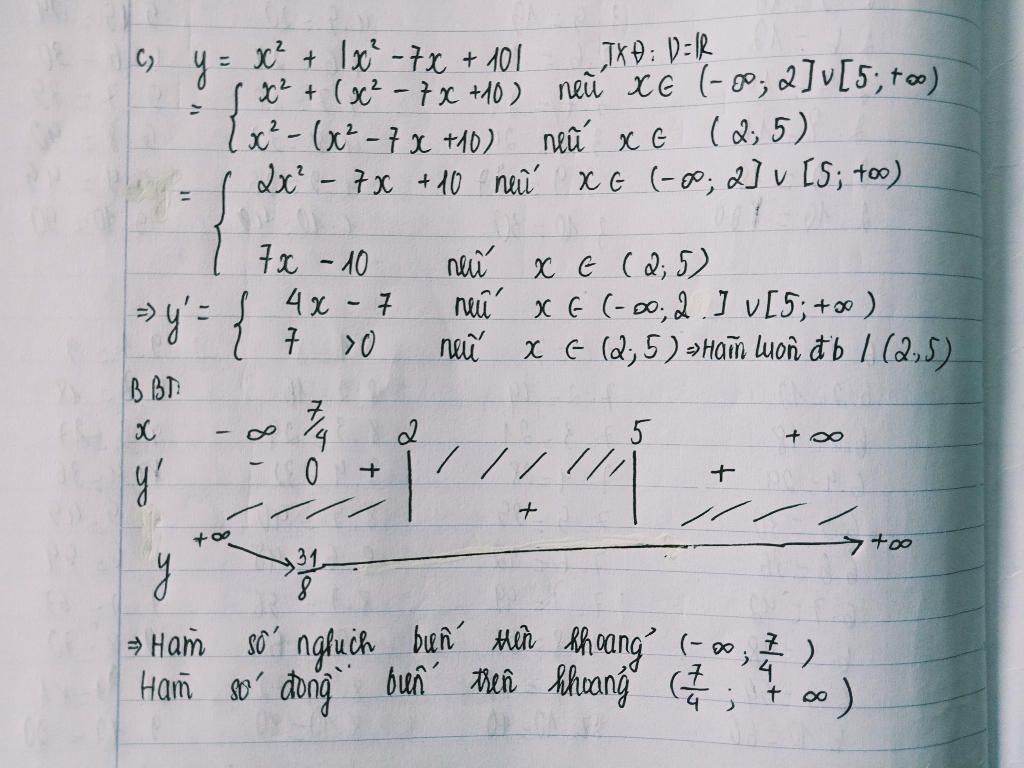 c, y = x² + |x² - 7x + 10| , TXĐ: D=ℝ
= { x² + (x² - 7x +10) nếu x ∈ (-∞; 2] ∨ [5; +∞)
x² - (x² - 7x +10) nếu x ∈ (2; 5)
= { 2x² - 7x + 10 nếu x ∈ (-∞; 2] ∨ [5; +∞)
7x - 10 nếu x ∈ (2,5)
=> y' = { 4x - 7 nếu x ∈ (-∞; 2.] ∨ [5; +∞)
7 >0 nếu x ∈ (2,5) => Hàm luôn đb / (2,5)
BBT:
x -∞ 7/4 2 5 +∞
y' - 0 + +
+
y +∞ 31/8 +∞
=> Hàm số nghịch biến trên khoảng (-∞; 7/4)
Hàm số đồng biến trên khoảng (7/4; +∞)